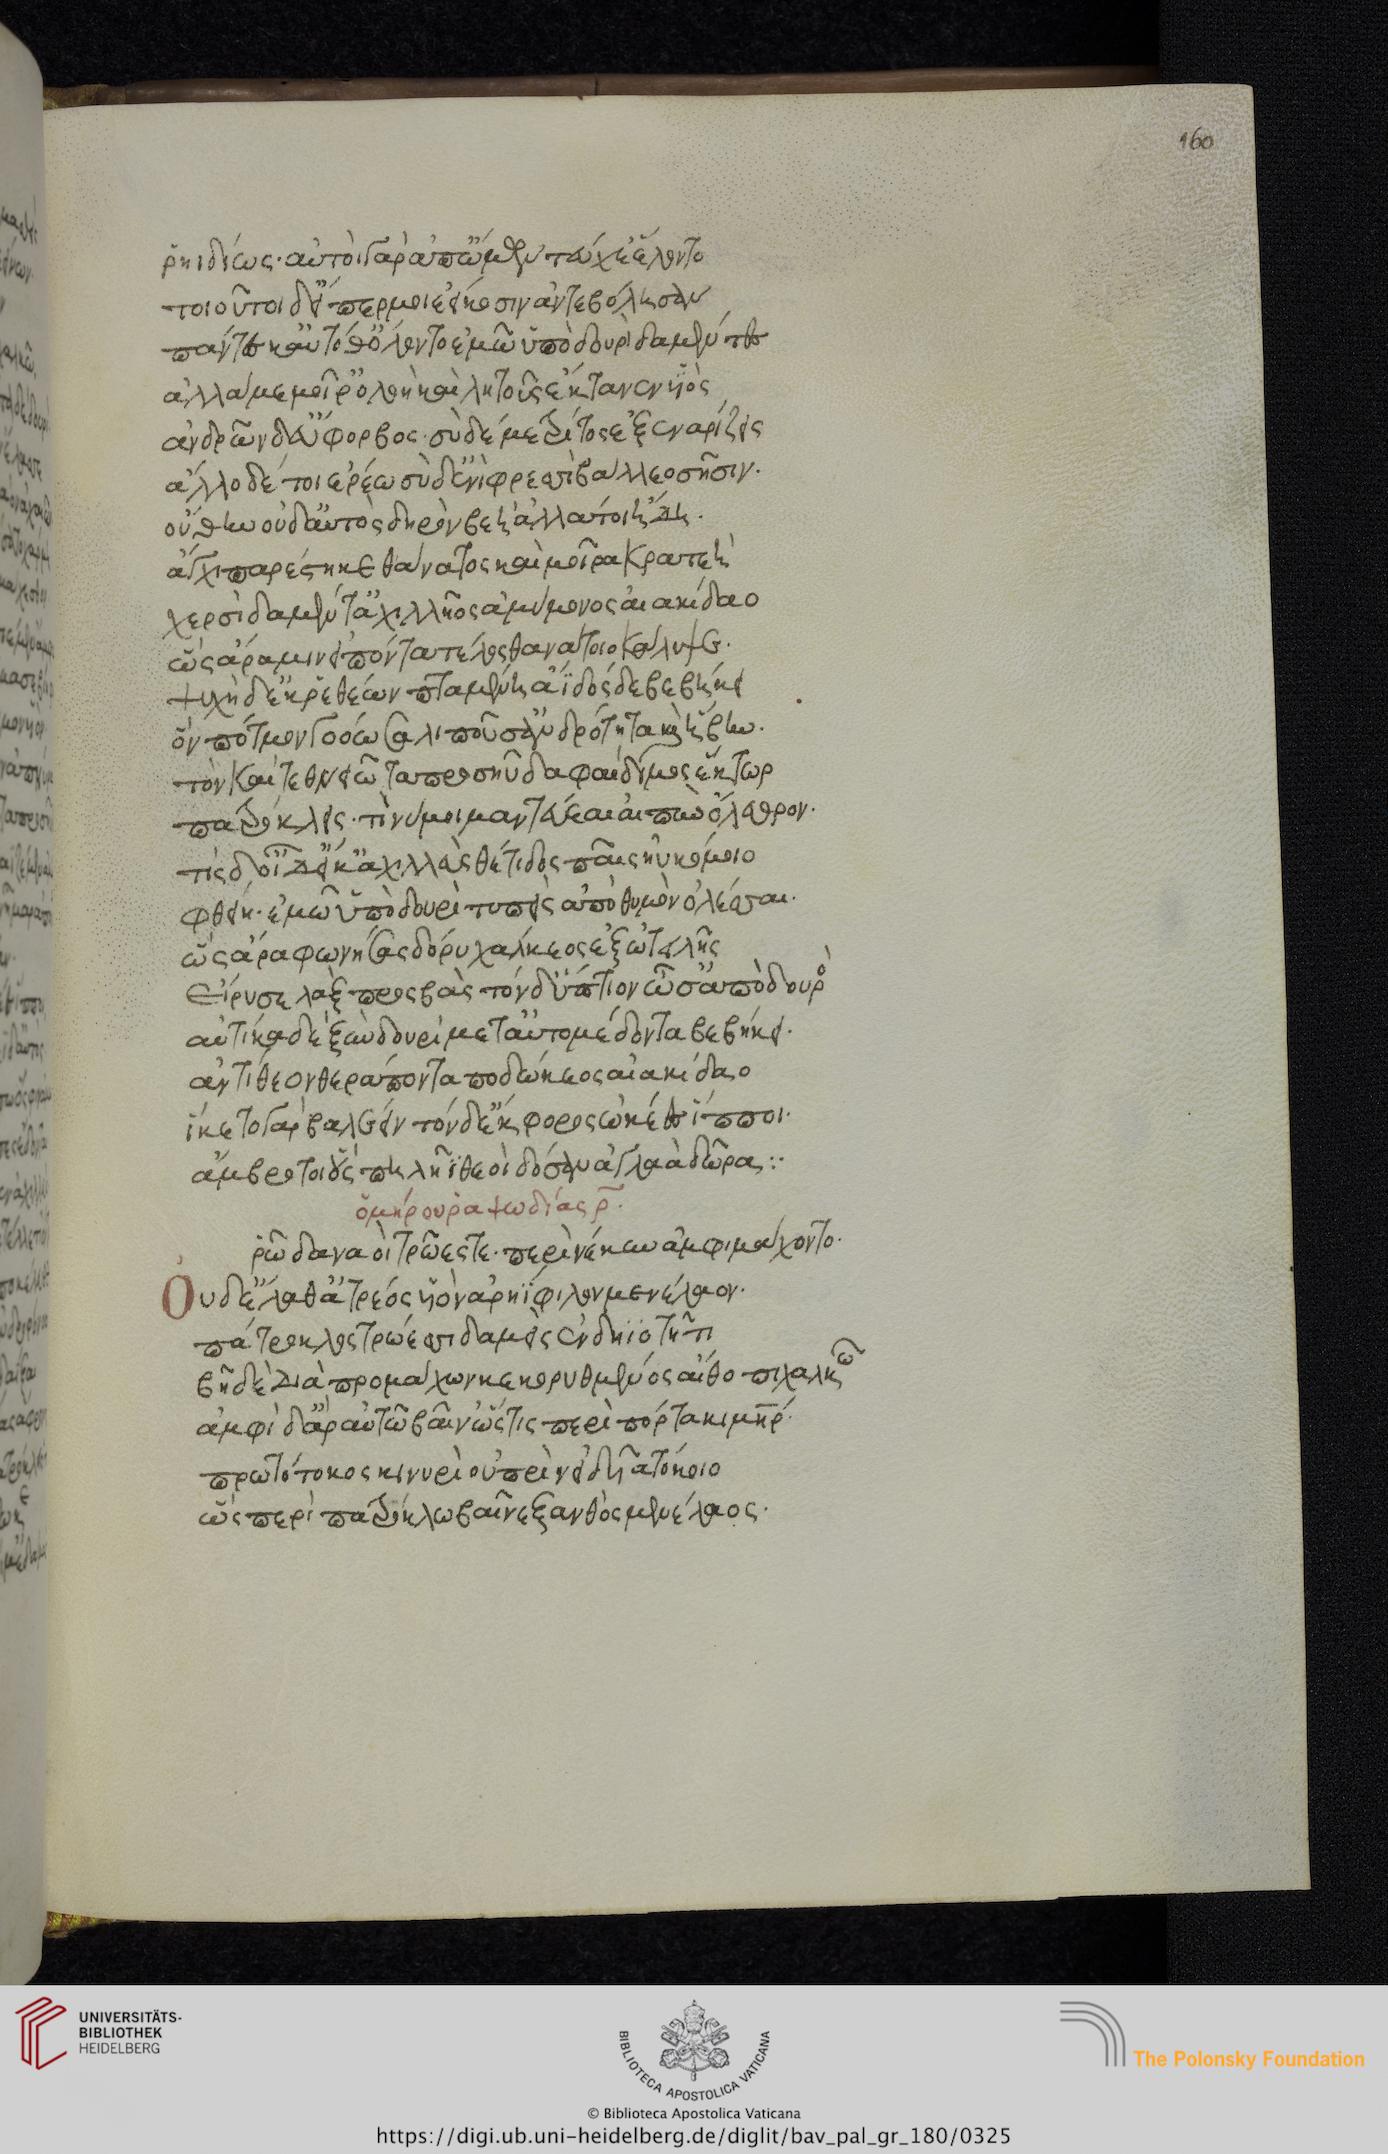 160
ῥηϊδίως· αὐτοὶ γὰρ ἀπ' ὤμων τεύχε' ἕλοντο
τοιοῦτοι δ' εἴπερ μοι ἐείκοσιν ἀντεβόλησαν
πάντες κ' αὐτόθ' ὄλοντο ἐμῶ ὑπὸ δουρὶ δαμέντες
ἀλλά με μοῖρ' ὀλοὴ καὶ λητοῦς ἔκτανεν υἱὸς
ἀνδρῶν δ' εὔφορβος· σὺ δέ με τρίτος ἐξεναρίζεις
ἄλλο δέ τοι ἐρέω σὺ δ' ἐνὶ φρεσὶ βάλλεο σῆσιν·
οὔ θην οὐδ' αὐτὸς δηρὸν βέῃ ἀλλά τοι ἤδη·
ἄγχι παρέστηκε θάνατος καὶ μοῖρα κραταιὴ
χερσὶ δαμέντ' ἀχιλλῆος ἀμύμονος αἰακίδαο
ὣς ἄρα μιν εἰπόντα τέλος θανάτοιο κάλυψε·
ψυχὴ δ' ἐκ ῥεθέων πταμένη ἄϊδόσδε βεβήκει
ὃν πότμον γοόωσα λιποῦσ' ἀνδρότητα καὶ ἥβην·
τὸν καὶ τεθνειῶτα προσηύδα φαίδιμος ἕκτωρ
πατρόκλεις· τί νύ μοι μαντεύεαι αἰπὺν ὄλεθρον·
τίς δ' οἶδ' εἴ κ' ἀχιλλεὺς θέτιδος πάϊς ἠϋκόμοιο
φθείη· ἐμῶ ὑπὸ δουρὶ τυπεὶς ἀπὸ θυμὸν ὀλέσσαι·
ὣς ἄρα φωνήσας δόρυ χάλκεον ἐξ ὠτειλῆς
εἴρυσε λὰξ προσβὰς τὸν δ' ὕπτιον ὦσ' ἀπὸ δουρός
αὐτίκα δὲ ξὺν δουρὶ μετ' αὐτομέδοντα βεβήκει·
ἀντίθεον θεράποντα ποδώκεος αἰακίδαο
ἵετο γὰρ βαλέειν τὸν δ' ἔκφερον ὠκέες ἵπποι·
ἄμβροτοι οὓς πηλῆϊ θεοὶ δόσαν ἀγλαὰ δῶρα :·
ὁμήρου ῥαψωδίας ρ·
ρῶ δαναοὶ τρῶές τε· περὶ νέκυν ἀμφιμάχοντο·
Οὐδ' ἔλαθ' ἀτρέος υἱὸν ἀρηΐφιλον μενέλαον·
πάτροκλος τρώεσσι δαμεὶς ἐν δηϊοτῆτι
βῆ δὲ διὰ προμάχων κεκορυθμένος αἴθοπι χαλκῶ
ἀμφὶ δ' ἄρ' αὐτῶ βαῖν' ὥς τις περὶ πόρτακι μήτηρ·
πρωτότοκος κινυρὴ οὐ πρὶν εἰδυῖα τόκοιο
ὣς περὶ πατρόκλω βαῖνε ξανθὸς μενέλαος·
UNIVERSITÄTS-
BIBLIOTHEK
HEIDELBERG
BIBLIOTECA APOSTOLICA VATICANA
The Polonsky Foundation
© Biblioteca Apostolica Vaticana
https://digi.ub.uni-heidelberg.de/diglit/bav_pal_gr_180/0325